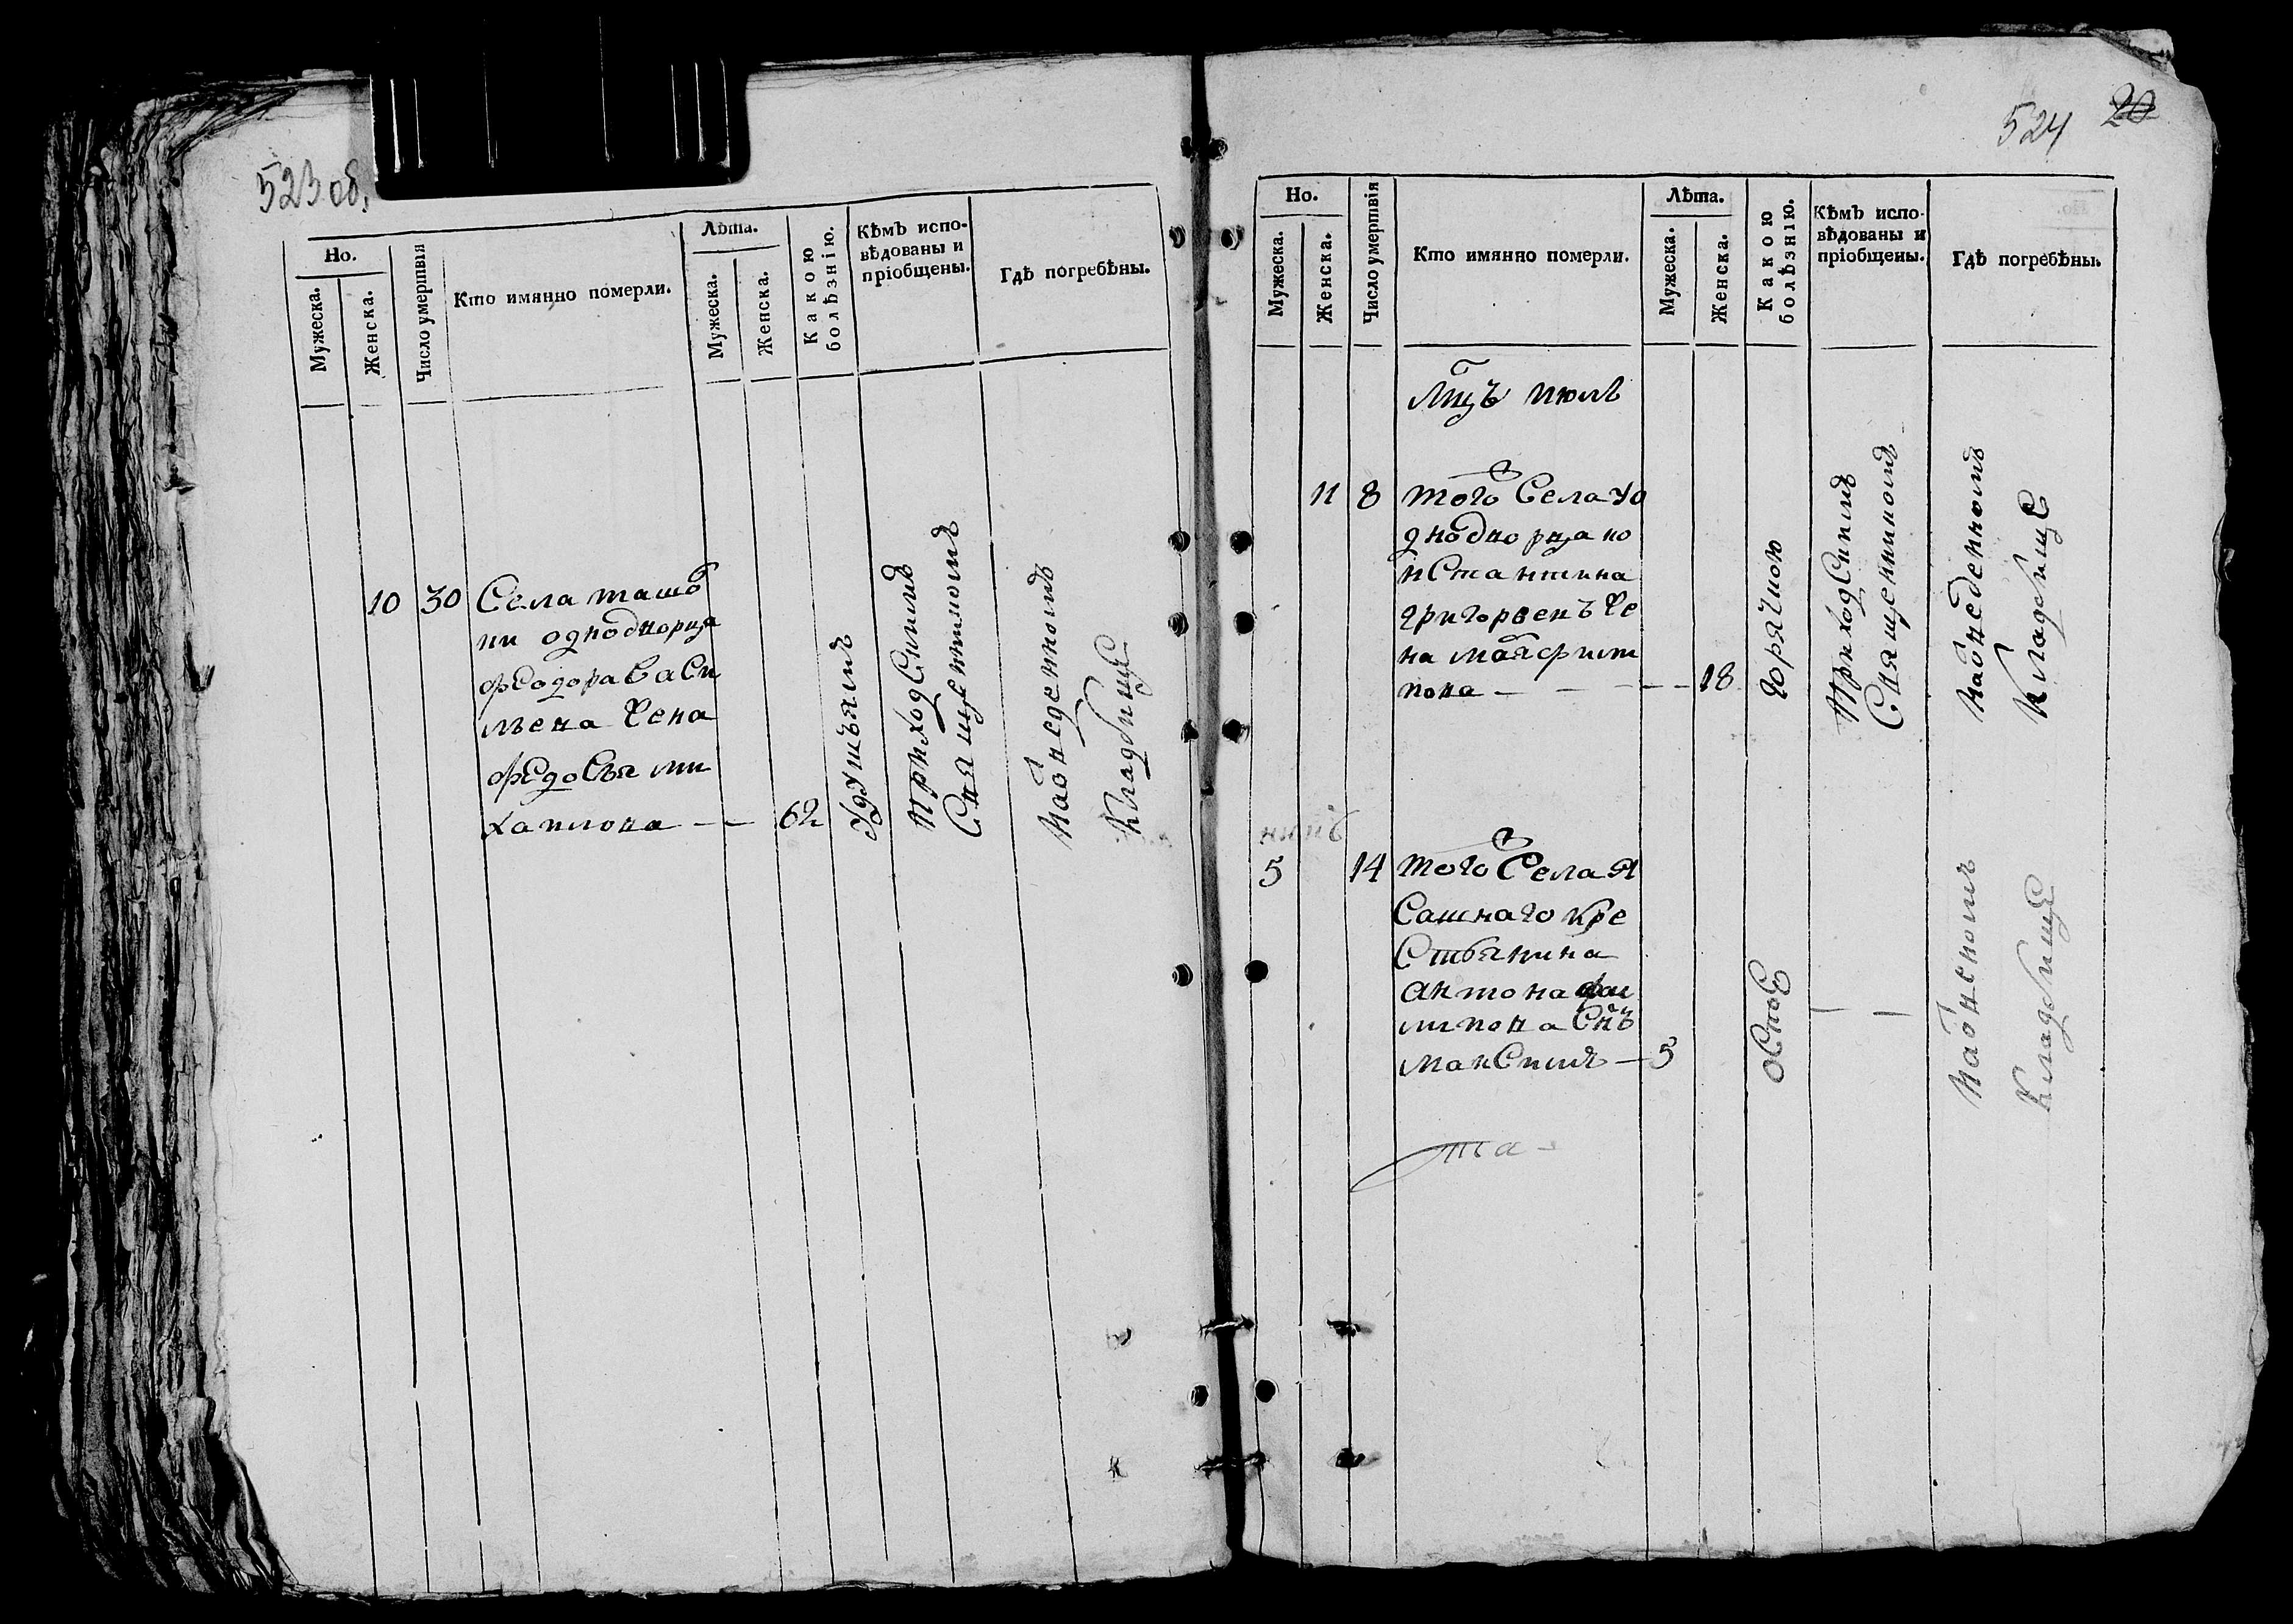 523 об.
Но.
Мужеска.
Женска.
Число умертвія
Кто имянно померли.
Лѣта.
Мужеска.
Женска.
Какою
болѣзнію.
Кѣмъ испо-
вѣдованы и
пріобщены.
Гдѣ погребѣны.
10 30 Села ташо
ли однодворца
феодора васи
льева жена
федосья ми
хаилова — — 62
удушьямъ
приходскимъ
священникомъ
на отведенномъ
кладбище
524 20
Но.
Мужеска.
Женска.
Число умертвія
Кто имянно померли.
Лѣта.
Мужеска.
Женска.
Какою
болѣзнію.
Кѣмъ испо-
вѣдованы и
пріобщены.
Гдѣ погребѣны.
Мцъ июль
11 8 того Села
днодворца ко
нстантина
григорьевъ же
на
пова — — — — 18
горячкою
приходскимъ
священникомъ
на отведенномъ
кладбище
5 14 того Села я
сашнаго кре
стьянина
антона фи
липова снъ
максимъ — 5
оспою
— —
кладбище
та-